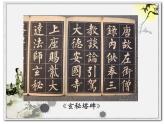 唐故左街僧
録内供奉三
教談論引駕
大德安國寺
上座賜紫大
達法師玄秘
《玄秘塔碑》